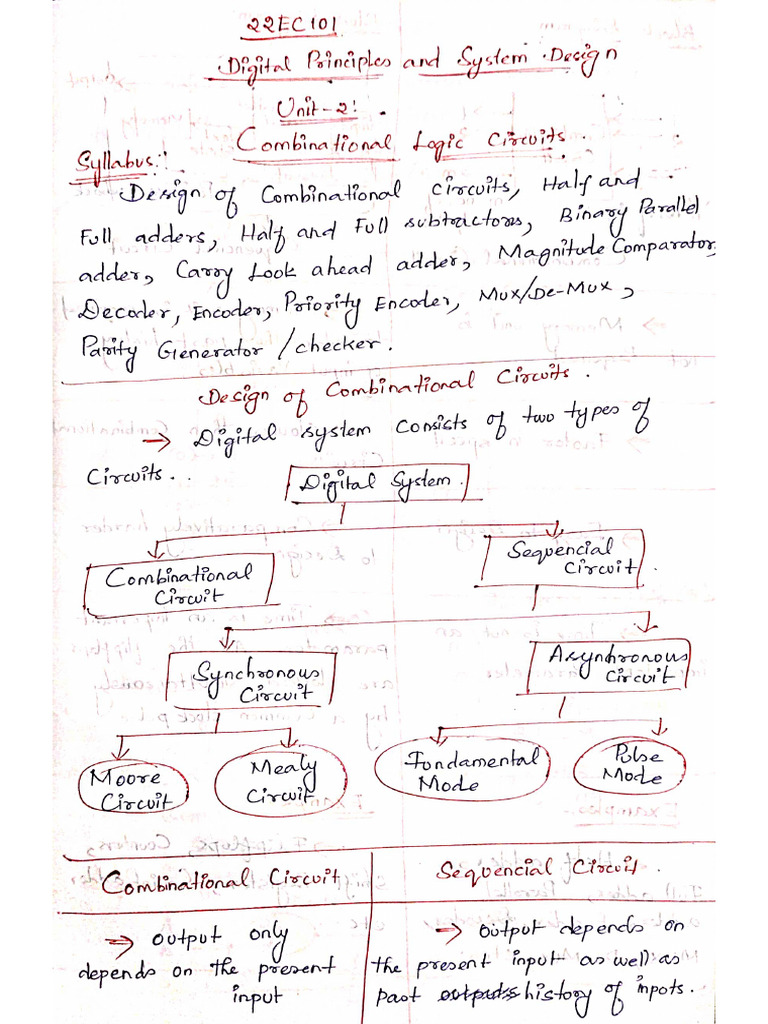 22EC101
Digital Principles and System Design
Unit-2:
Combinational Logic Circuits.
Syllabus:
Design of Combinational circuits, Half and
Full adders, Half and Full subtractors, Binary Parallel
adder, Carry Look ahead adder, Magnitude Comparator,
Decoder, Encoder, Priority Encoder, Mux/De-Mux,
Parity Generator/checker.
Design of Combinational Circuits.
→ Digital system consists of two types of
Circuits..
Digital System.
Combinational
Circuit
Sequencial
Circuit.
Synchronous
Circuit
Asynhronous
Circuit
Moore
Circuit
Mealy
Circuit
Fundamental
Mode
Pulse
Mode
Combinational Circuit
→ output only
depends on the present
input
Sequencial Circuit.
→ output depends on
the present input as well as
past outputs history of inpots.